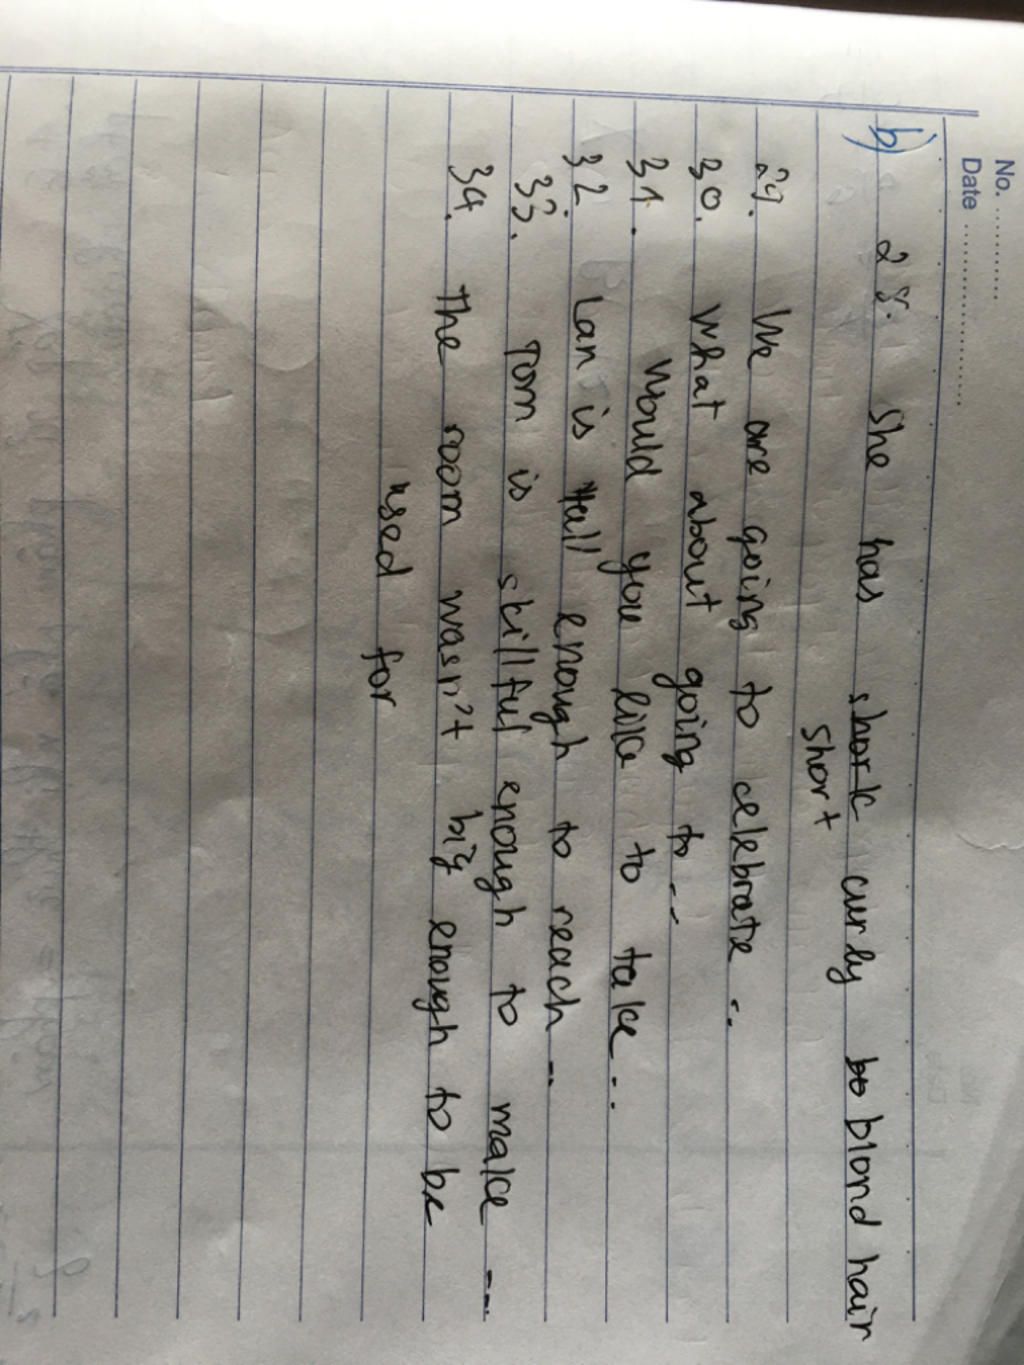 No. ............
Date ......................
b) 28. She has short curly blond hair
short
29. We are going to celebrate ...
30. What about going to ...
31. Would you like to take ...
32. Lan is tall enough to reach ...
33. Tom is skillful enough to make ...
34. The room wasn't big enough to be
used for